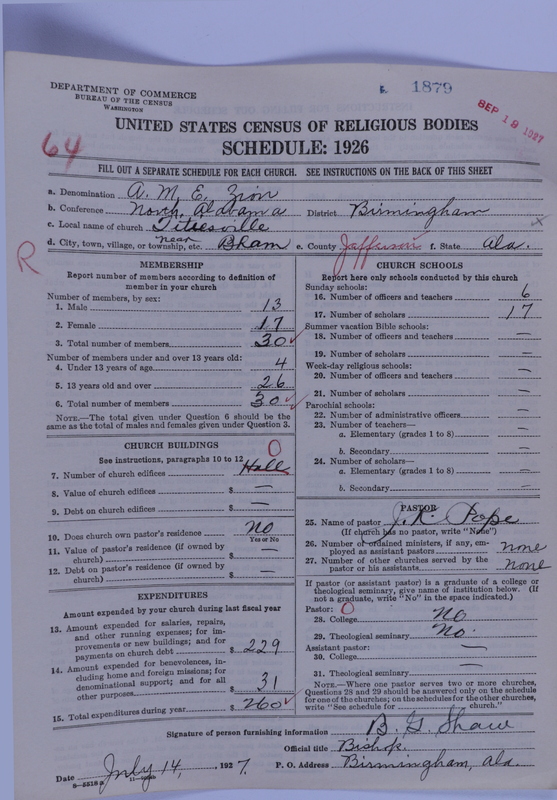 DEPARTMENT OF COMMERCE
BUREAU OF THE CENSUS
WASHINGTON
1879
SEP 19 1927
UNITED STATES CENSUS OF RELIGIOUS BODIES
SCHEDULE: 1926
64
FILL OUT A SEPARATE SCHEDULE FOR EACH CHURCH. SEE INSTRUCTIONS ON THE BACK OF THIS SHEET
a. Denomination A. M. E. Zion
b. Conference North Alabama District Birmingham
c. Local name of church Titusville
d. City, town, village, or township, etc. near Bham e. County Jefferson f. State Ala.
R
MEMBERSHIP
Report number of members according to definition of
member in your church
Number of members, by sex:
1. Male 13
2. Female 17
3. Total number of members 30
Number of members under and over 13 years old:
4. Under 13 years of age 4
5. 13 years old and over 26
6. Total number of members 30
NOTE.—The total given under Question 6 should be
same as the total of males and females given under Question 3.
CHURCH BUILDINGS
See instructions, paragraphs 10 to 12 0
7. Number of church edifices Hall
8. Value of church edifices $ —
9. Debt on church edifices $ —
10. Does church own pastor's residence No
Yes or No
11. Value of pastor's residence (if owned by
church) $ —
12. Debt on pastor's residence (if owned by
church) $ —
EXPENDITURES
Amount expended by your church during last fiscal year
13. Amount expended for salaries, repairs,
and other running expenses; for im-
provements or new buildings; and for
payments on church debt $ 229
14. Amount expended for benevolences, in-
cluding home and foreign missions; for
denominational support; and for all
other purposes $ 31
15. Total expenditures during year $ 260
CHURCH SCHOOLS
Report here only schools conducted by this church
Sunday schools:
16. Number of officers and teachers 6
17. Number of scholars 17
Summer vacation Bible schools:
18. Number of officers and teachers —
19. Number of scholars —
Week-day religious schools:
20. Number of officers and teachers —
21. Number of scholars —
Parochial schools:
22. Number of administrative officers —
23. Number of teachers—
a. Elementary (grades 1 to 8) —
b. Secondary —
24. Number of scholars—
a. Elementary (grades 1 to 8) —
b. Secondary —
PASTOR
25. Name of pastor J. R. Pope
(If church has no pastor, write "None")
26. Number of ordained ministers, if any, em-
ployed as assistant pastors none
27. Number of other churches served by the
pastor or his assistants none
If pastor (or assistant pastor) is a graduate of a college or
theological seminary, give name of institution below. (If
not a graduate, write "No" in the space indicated.)
Pastor: 0
28. College No
29. Theological seminary No.
Assistant pastor: —
30. College —
31. Theological seminary
NOTE.—Where one pastor serves two or more churches,
Questions 28 and 29 should be answered only on the schedule
for one of the churches; on the schedules for the other churches,
write "See schedule for church."
Signature of person furnishing information B. G. Shaw
Official title Bishop.
Date July 14, 1927. P. O. Address Birmingham, Ala.